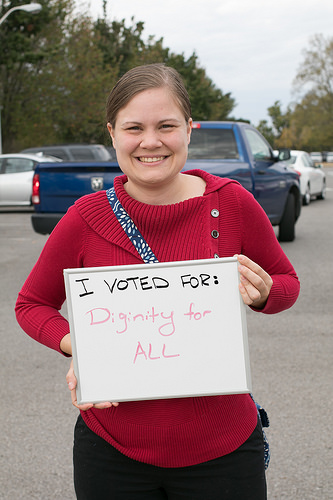 I VOTED FOR:
Diginity for
ALL